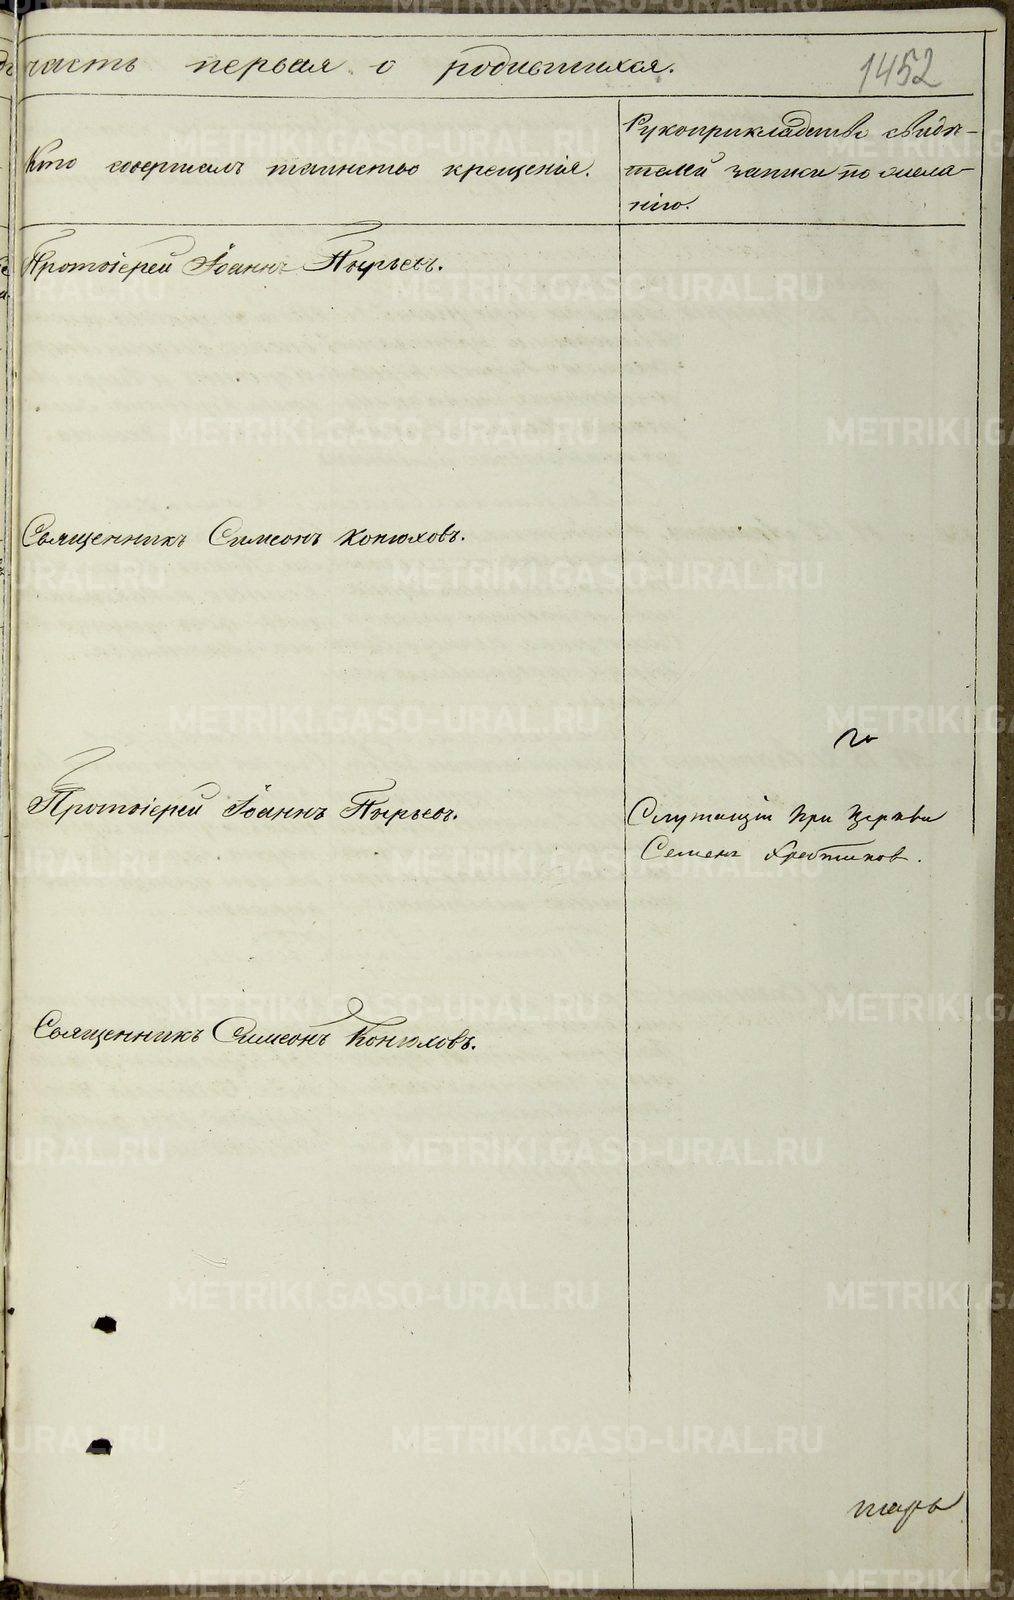 часть первая о родившихся.
1452
Кто совершалъ таинство крещенія.
Рукоприкладство свидѣ-
телей записи по жела-
нію.
Протоіерей Іоаннъ Пырьевъ.
Священникъ Симеонъ Конюховъ.
Протоіерей Іоаннъ Пырьевъ.
Служащій при Церкви
Семенъ
Священникъ Симеонъ Конюховъ.
METRIKI.GASO-URAL.RU